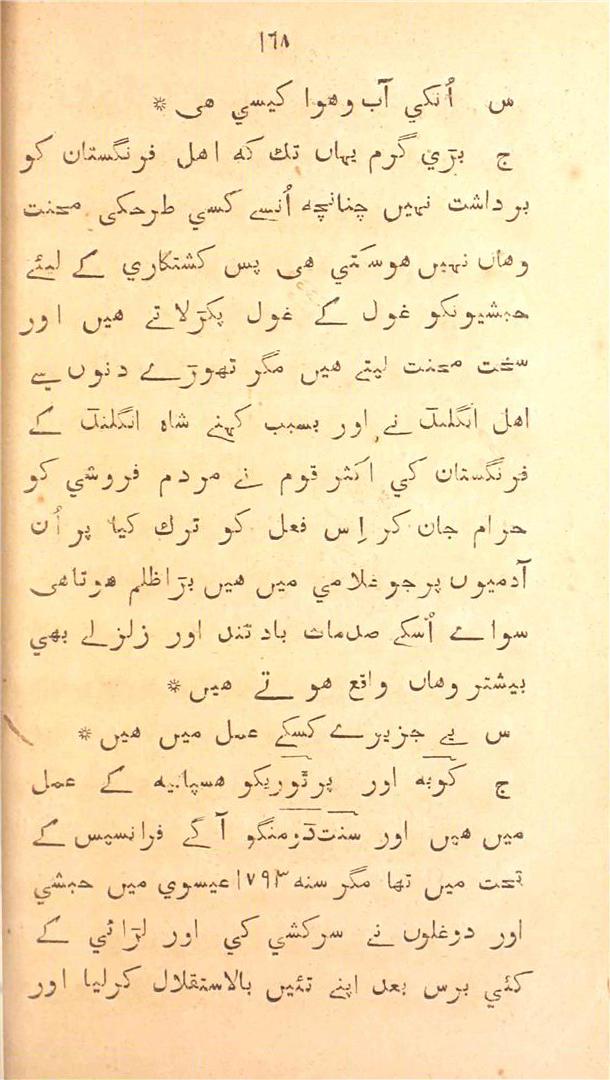 ١٦٨
س اُنکي آب وهوا کیسي هی *
ج بڑي گرم یہاں تك که اهل فرنگستان کو
برداشت نہیں چنانچه اُنسے کسي طرحکی محنت
وهاں نہیں هوسکتي هی پس کشتکاري کے لیئے
حبشیونکو غول کے غول پکڑلاتے هیں اور
سخت محنت لیتے هیں مگر تھوڑے دنوں سے
اهل انگلنڈ نے اور بسبب کہنے شاہ انگلنڈ کے
فرنگستان کي اکثر قوم نے مردم فروشي کو
حرام جان کر اِس فعل کو ترك کیا پر اُن
آدمیوں پر جو غلامي میں هیں بڑا ظلم هوتاهی
سواے اُسکے صدمات باد تند اور زلزلے بھي
بیشتر وهاں واقع هوتے هیں *
س یے جزیرے کسکے عمل میں هیں *
ج کوبه اور پرٹوریکو هسپانیه کے عمل
میں هیں اور سنت ڈومنگو آگے فرانسیس کے
تحت میں تھا مگر سنه ١٧٩٣ عیسوي میں حبشي
اور دوغلوں نے سرکشي کي اور لڑائي کے
کئي برس بعد اپنے تئیں بالاستقلال کرلیا اور